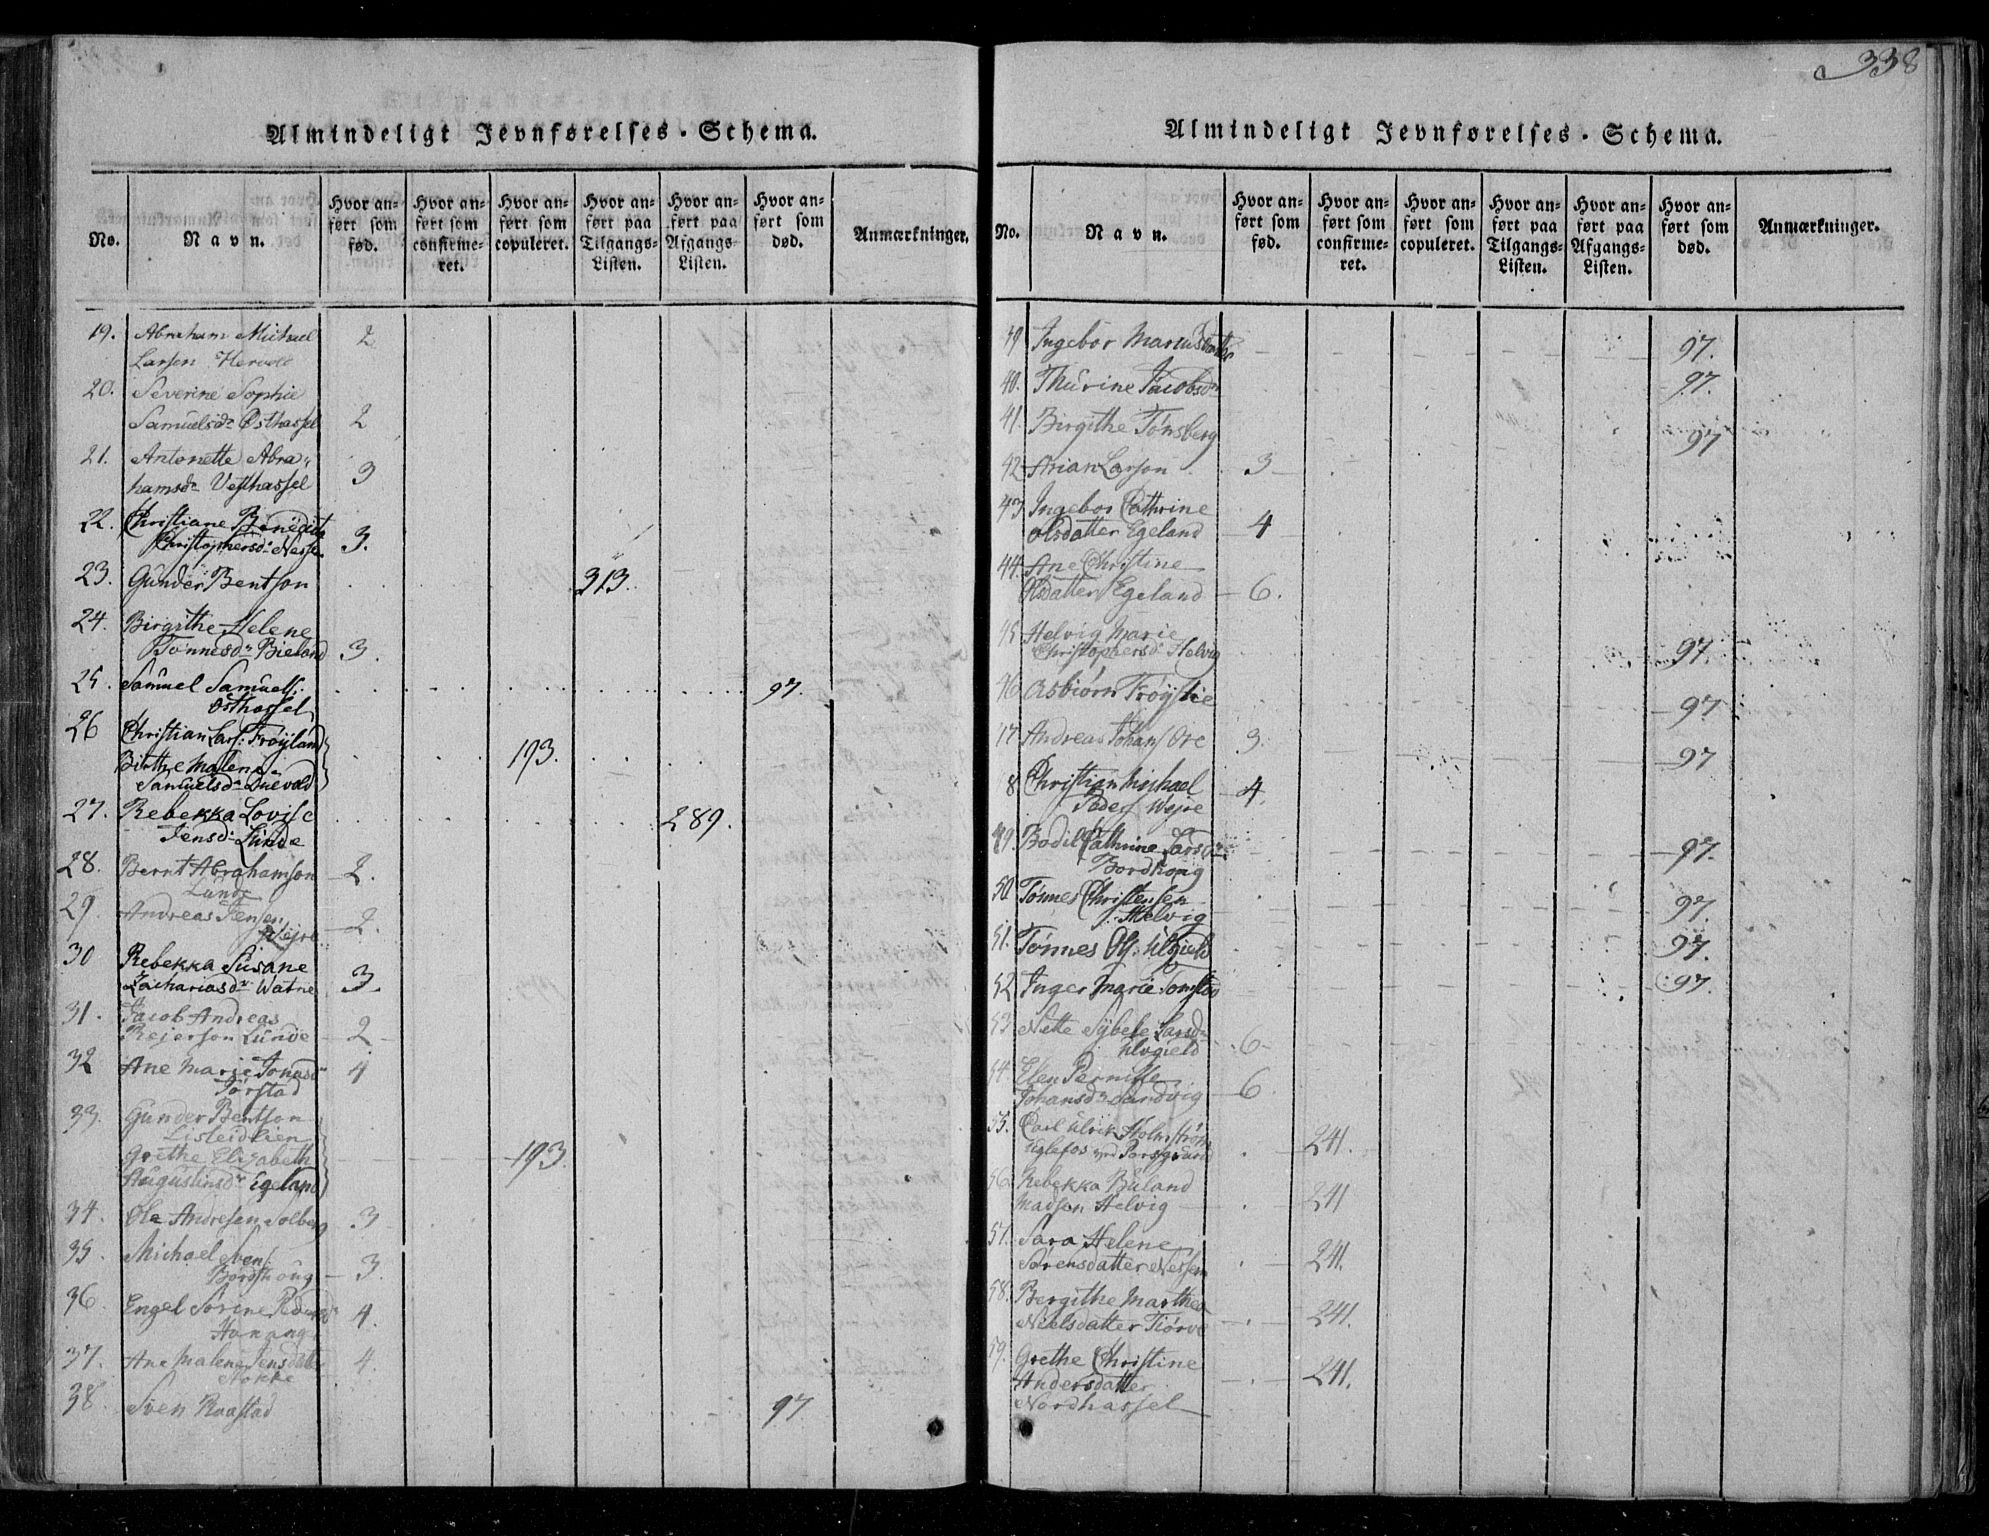 338
Almindeligt Jevnførelses-Schema.
No. Navn. Hvor anført som fød. Hvor anført som confirmeret. Hvor anført som copuleret. Hvor anført paa Tilgangs-Listen. Hvor anført paa Afgangs-Listen. Hvor anført som død. Anmærkninger.
19. Abraham Michael 2
Larsen
20. Severine Sophie
Samuelsdr Østhassel 2
21. Antonette Abra-
hamsdr Vesthassel 3
22. Christiane Benedicta
Christophersdr Nesse 3.
23. Gunder Bentson 313.
24. Birgithe Helene
Tönnesdr Bieland 3.
25. Samuel Samuels.
Østhassel 97.
26 Christian Lars. Frøyland
Birthe Malene 193.
Samuelsdr
27. Rebekka Lovise 289.
Jensdr Lunde
28. Bernt Abrahamson 2.
Lunde
29. Andreas Jensen 2.
Wejre
30 Rebekka Susane
Zachariasdr Watne 3.
31. Jacob Andreas
Reierson Lunde 2
32 Ane Marie Jonasdr 4
Jørstad
33. Gunder Bentson
Lisleidlien
Grethe Elisabeth 193.
Augustinsdr Egeland
34. Ole Andresen Solberg 3
35. Michael Svens.
Bordhoug 3.
36. Engel Sorine Pedersdr 4.
Hanang
37. Ane Malene Jensdatter 4.
38. Sven Raastad 97
Almindeligt Jevnførelses-Schema.
No. Navn. Hvor anført som fød. Hvor anført som confirmeret. Hvor anført som copuleret. Hvor anført paa Tilgangs-Listen. Hvor anført paa Afgangs-Listen. Hvor anført som død. Anmærkninger.
39 Ingebor Mariusdatter 97.
40. Thurine Jacobsdr 97.
41. Birgithe Tønsberg 97
42 Arian Larson 3
43 Ingebor Cathrine
Olsdatter Egeland 4
44. Ane Christine
Olsdatter Egeland 6.
45 Helvig Marie
Christophersdr Helvig 97.
46 Asbiörn Fröyslie 97
47 Andreas Johans. Ore 3. 97
8 Christian Michael 4.
Wejre
49. Bodil Cathrine Larsdr 97.
Bordhoug
50 Tönnes Christensen 97.
Helvig
51. Tönnes Ols. Ulgield 97.
52. Inger Marie Tomstad 97.
53. Mette Sybele Larsdr 6.
Ulvgield
54. Elen Pernille
Johansdr Sandvig 6
55. Carl Ulrik Holmstrøm
Eglefos ved Porsgrund 241.
56. Rebekka Buland
Madsen Helvig 241
57. Sara Helene
Sørensdatter Nessem 241.
58. Bergithe Marthea
Nielsdatter Tiørve 241.
59. Grethe Christine
Andersdatter 241.
Nordhassel